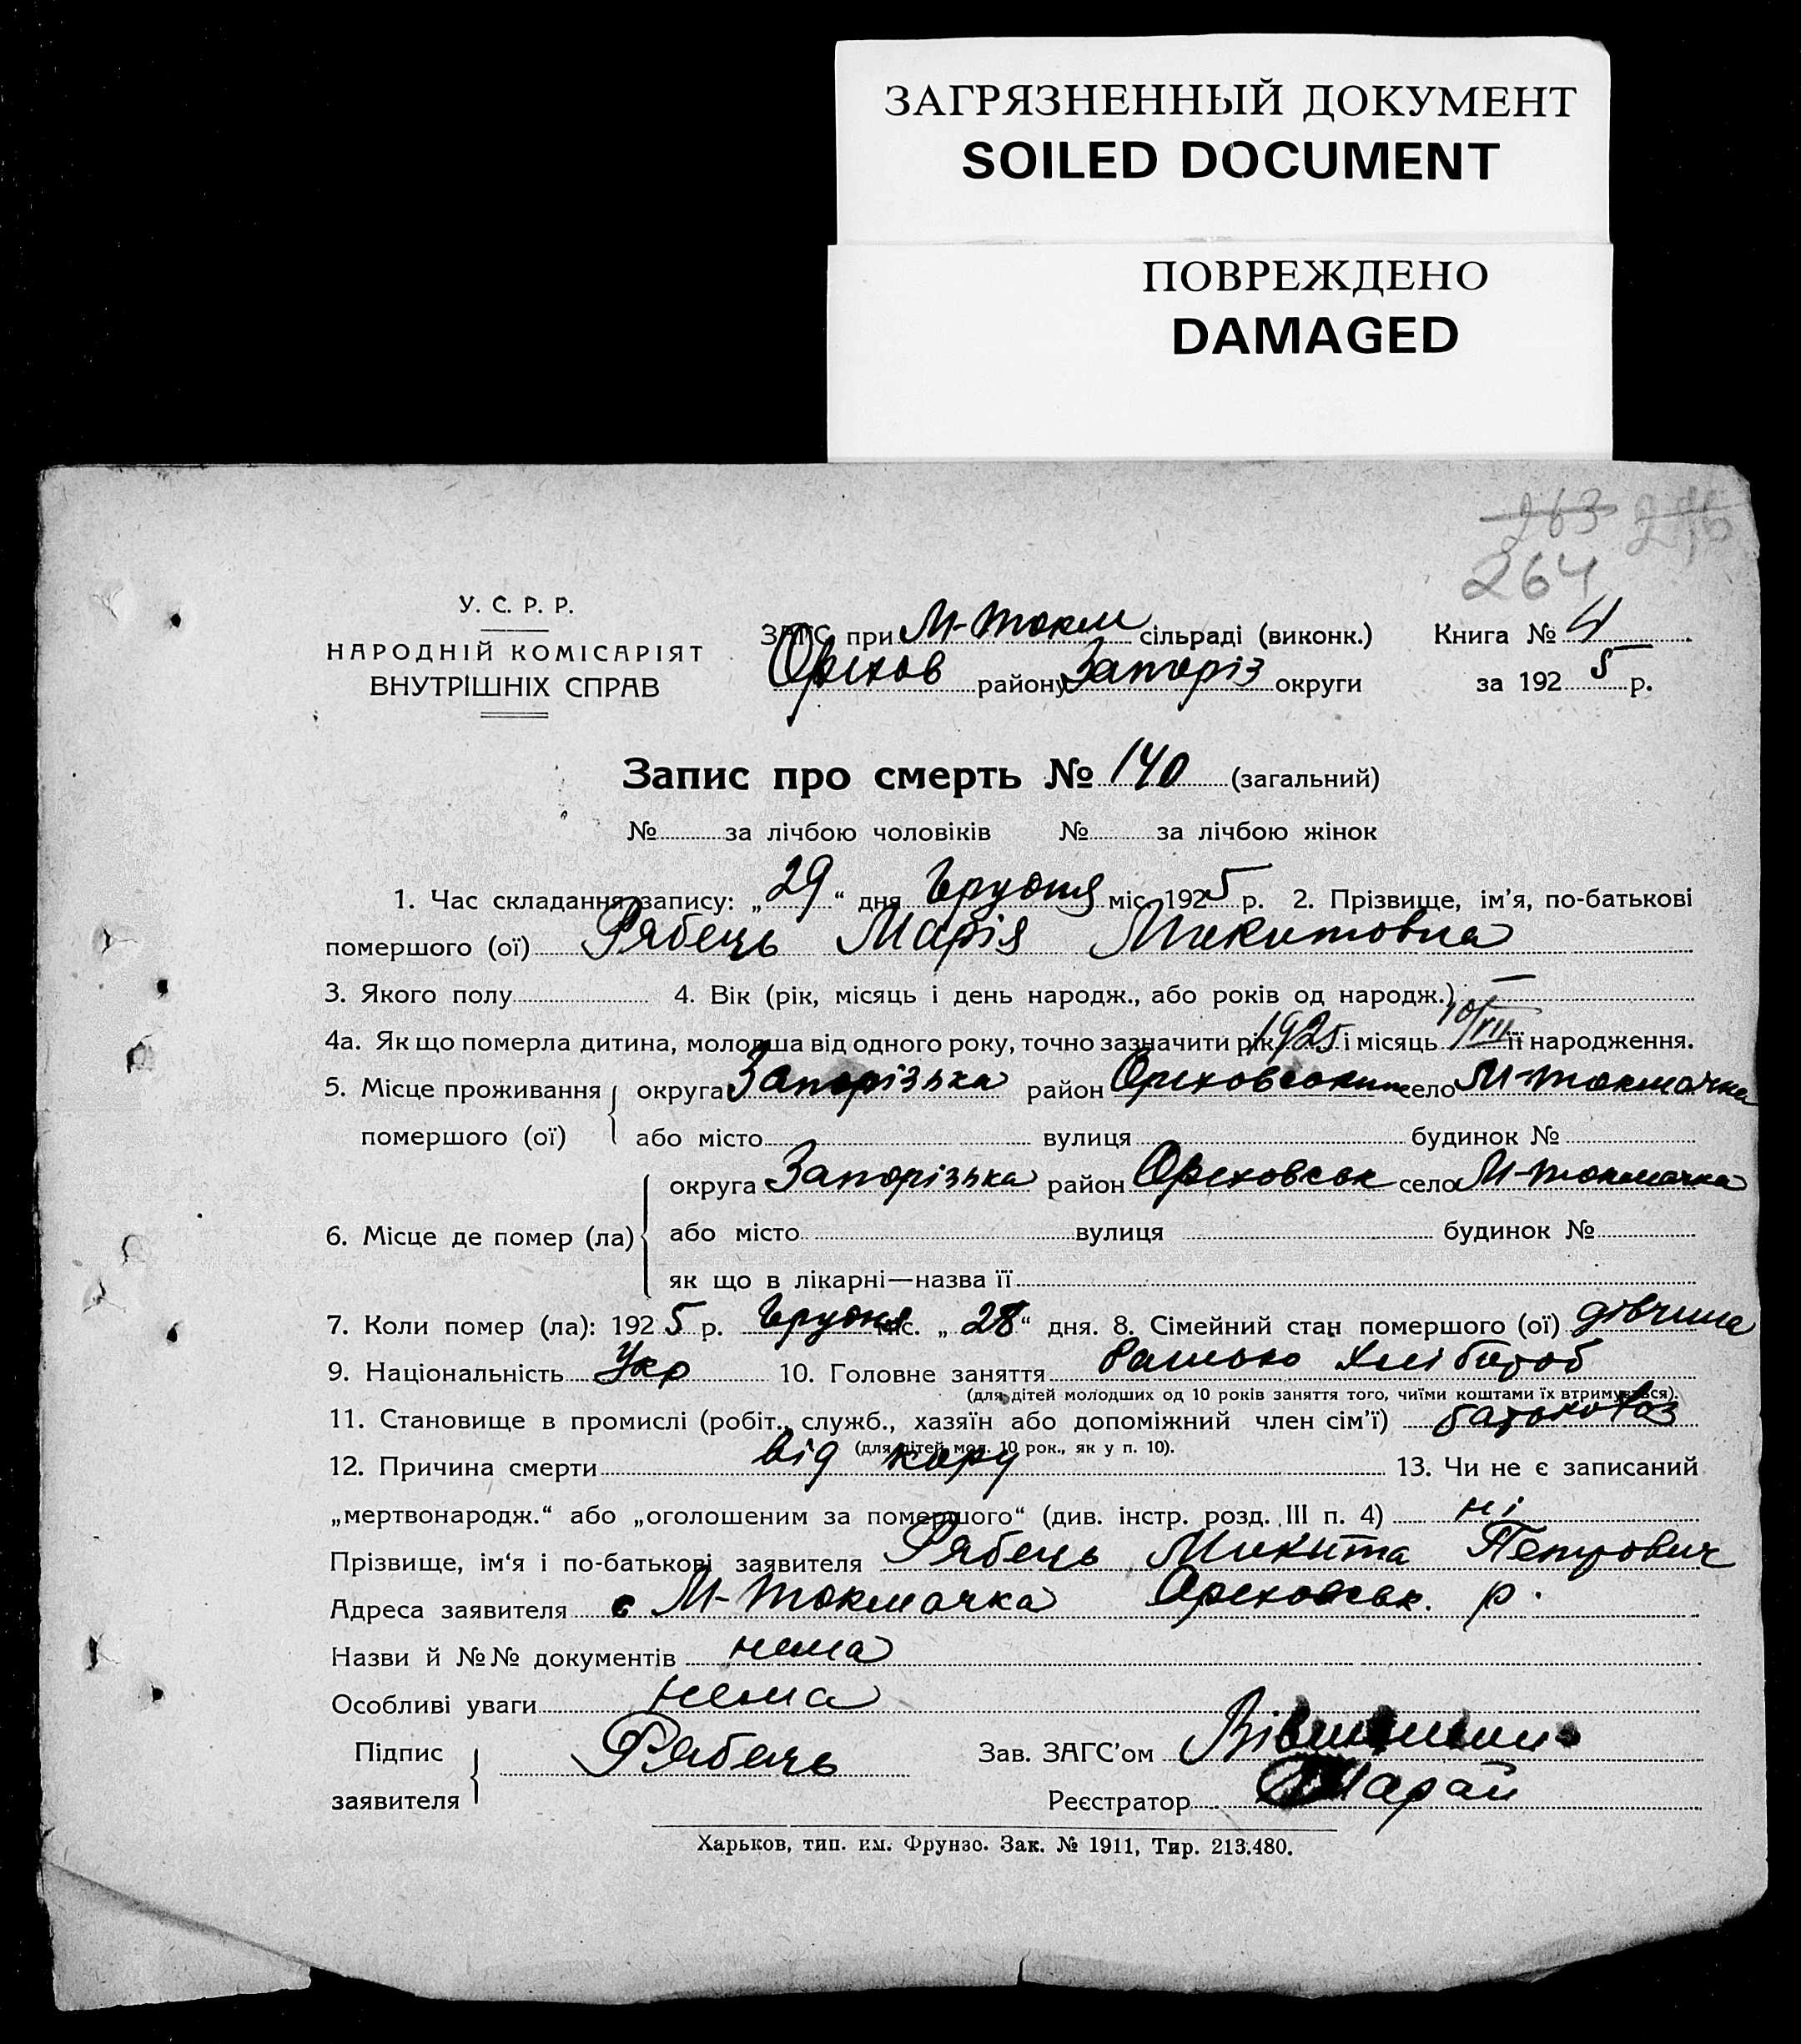 ЗАГРЯЗНЕННЫЙ ДОКУМЕНТ
SOILED DOCUMENT
ПОВРЕЖДЕНО
DAMAGED
263
264
У. С. Р. Р.
НАРОДНІЙ КОМІСАРІЯТ
ВНУТРІШНІХ СПРАВ
ЗАГС при М-Токм сільраді (виконк.) Книга № 4
Орехов району Запоріз округи за 1925 р.
Запис про смерть № 140 (загальний)
№ за лічбою чоловіків № за лічбою жінок
1. Час складання запису: „29“ дня Грудня міс. 1925 р. 2. Прізвище, ім'я, по-батькові
помершого (ої) Рябець Марія Микитовна
3. Якого полу 4. Вік (рік, місяць і день народж., або років од народж.) —
4а. Як що померла дитина, молодша від одного року, точно зазначити рік 1925 і місяць 10/VII її народження.
5. Місце проживання округа Запорізька район село М-Токмачка
помершого (ої) або місто вулиця будинок №
округа Запорізька район Ореховськ село М-Токмачка
6. Місце де помер (ла) або місто вулиця будинок №
як що в лікарні—назва її
7. Коли помер (ла): 1925 р. Грудня міс. „28“ дня. 8. Сімейний стан помершого (ої) дівчина
9. Національність Укр 10. Головне заняття Хлібороб
(для дітей молодших од 10 років заняття того, чиїми коштами їх втримується).
11. Становище в промислі (робіт., служб., хазяїн або допоміжний член сім'ї)
(для дітей мол. 10 рок., як у п. 10).
12. Причина смерти від кору 13. Чи не є записаний
„мертвонародж.“ або „оголошеним за помершого“ (див. інстр. розд. III п. 4) ні
Прізвище, ім'я і по-батькові заявителя Рябець Микита Петрович
Адреса заявителя с М-Токмачка Ореховськ. р.
Назви й №№ документів нема
Особливі уваги нема
Підпис заявителя Рябець Зав. ЗАГС'ом
Реєстратор
Харьков, тип. им. Фрунзе. Зак. № 1911, Тир. 213.480.